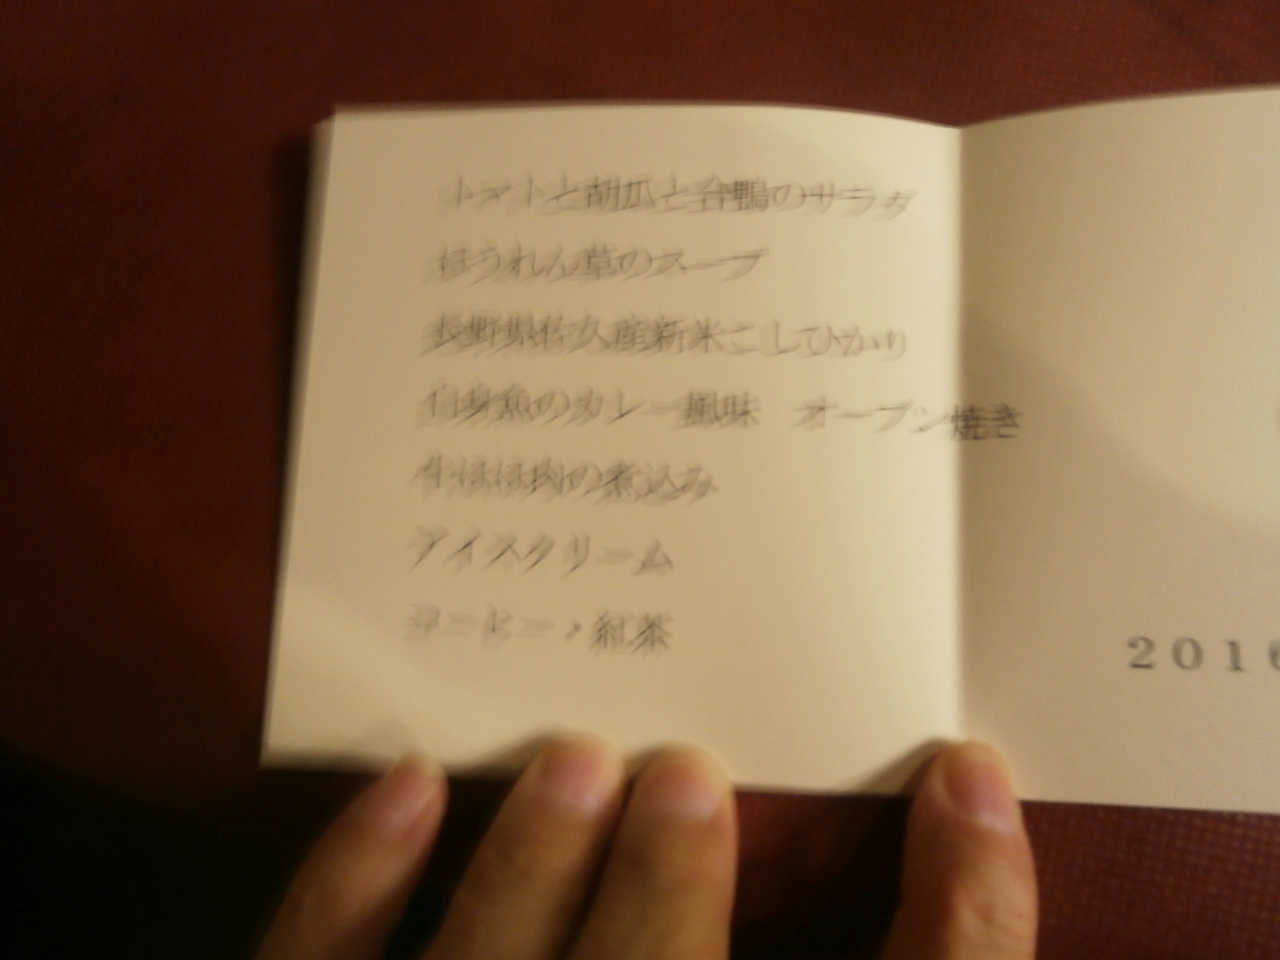 トマトと胡瓜と合鴨のサラダ
ほうれん草のスープ
長野県佐久産新米こしひかり
白身魚のカレー風味　オーブン焼き
牛ほほ肉の煮込み
アイスクリーム
コーヒー・紅茶
２０１６